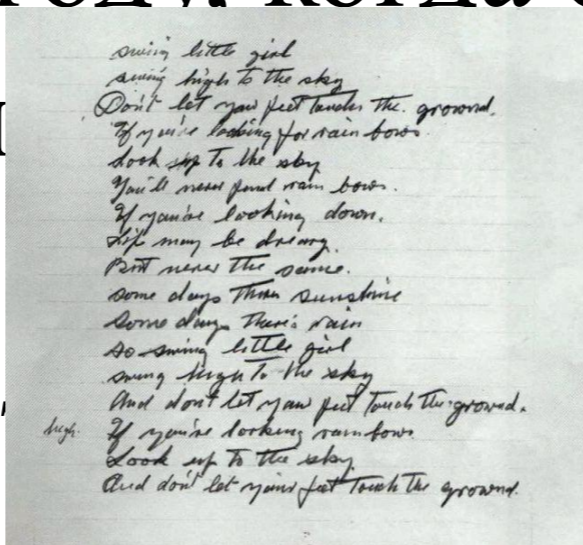 swing little girl
swing high to the sky
Don't let your feet touch the ground.
If you're looking for rain bows.
Look up to the sky
You'll never find rain bows.
If you're looking down.
Life may be dreary.
But never the same.
some days there sunshine
some days there's rain
so swing little girl
swing high to the sky
And don't let your feet touch the ground.
high. If you're looking rainbows
Look up to the sky
And don't let your feet touch the ground.